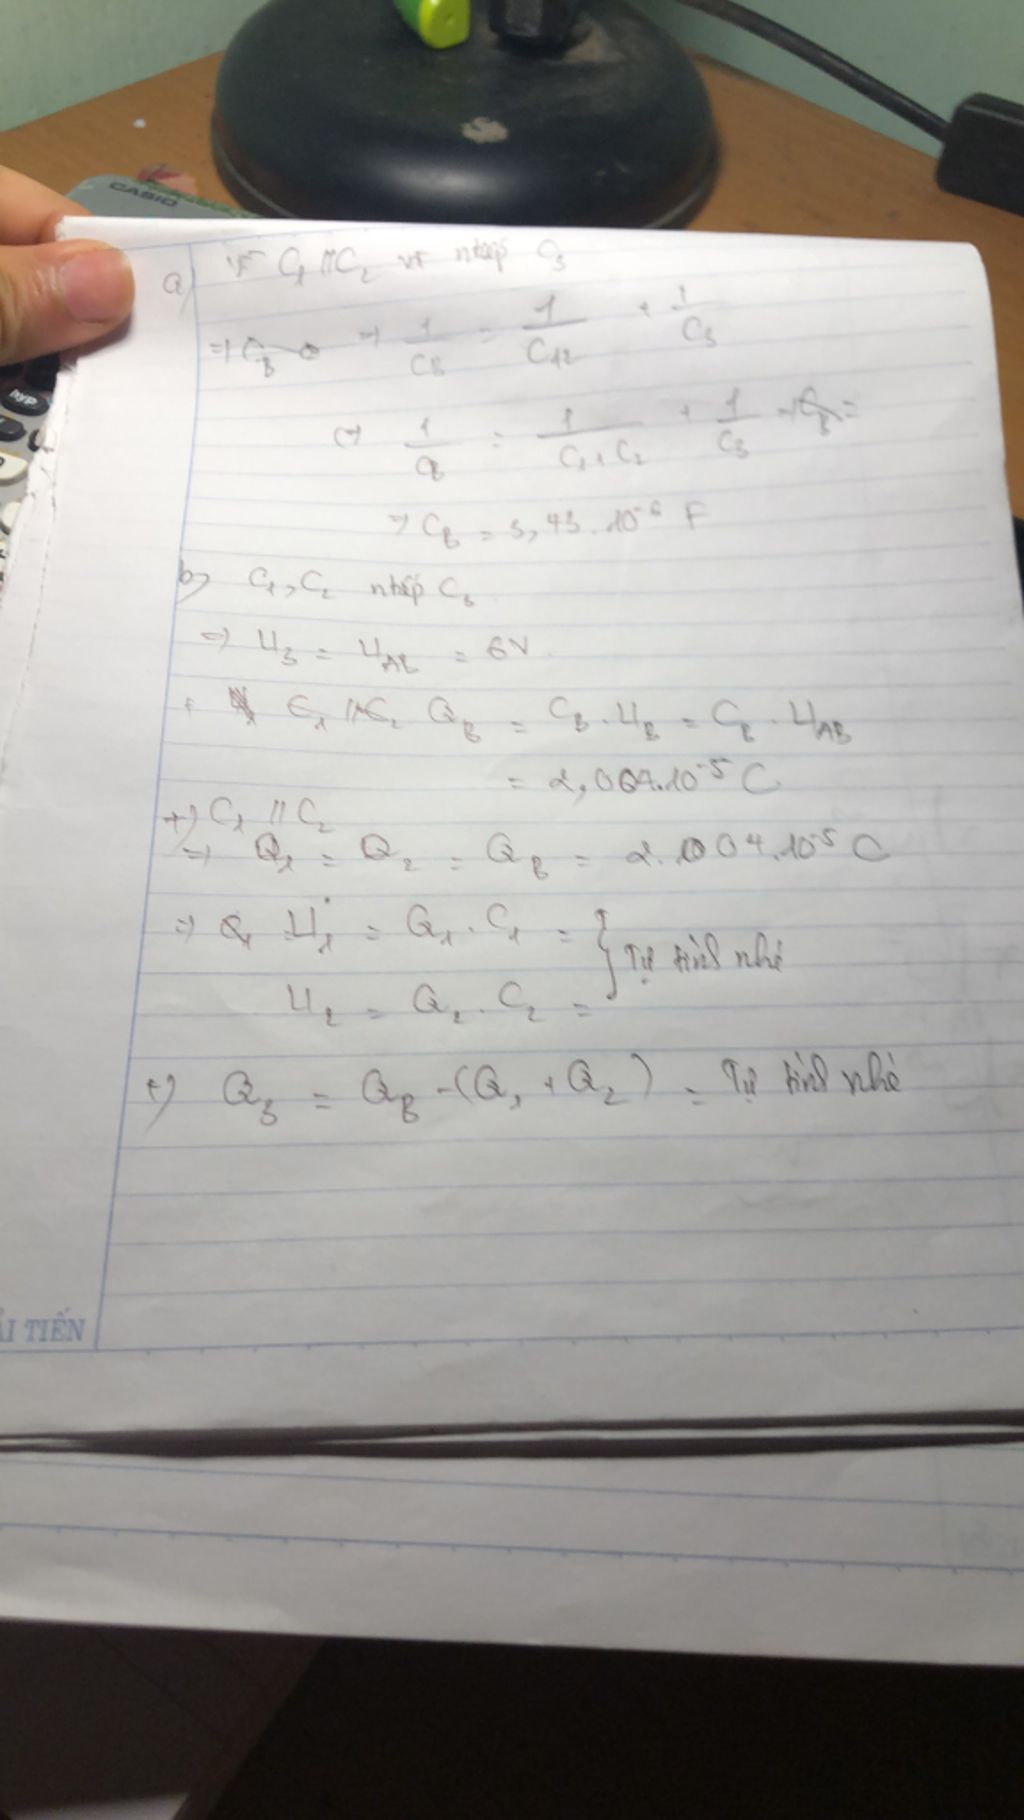 CASIO
hyp
a) Vì C₁ // C₂ và ntiếp C₃
=> 1/C_B = 1/C₁₂ + 1/C₃
(=) 1/C_B = 1/(C₁ + C₂) + 1/C₃
=> C_B = 3,43.10⁻⁶ F
b) C₁, C₂ ntiếp C₃
=> U₃ = U_AB = 6V
C₁ // C₂ Q_B = C_B . U_B = C_B . U_AB
= 2,004.10⁻⁵ C
+) C₁ // C₂
=> Q₁ = Q₂ = Q_B = 2.004.10⁻⁵ C
=> U₁ = Q₁ . C₁ = } Tự tính nhé
U₂ = Q₂ . C₂ =
+) Q₃ = Q_B - (Q₁ + Q₂) = Tự tính nhé
ẢI TIẾN